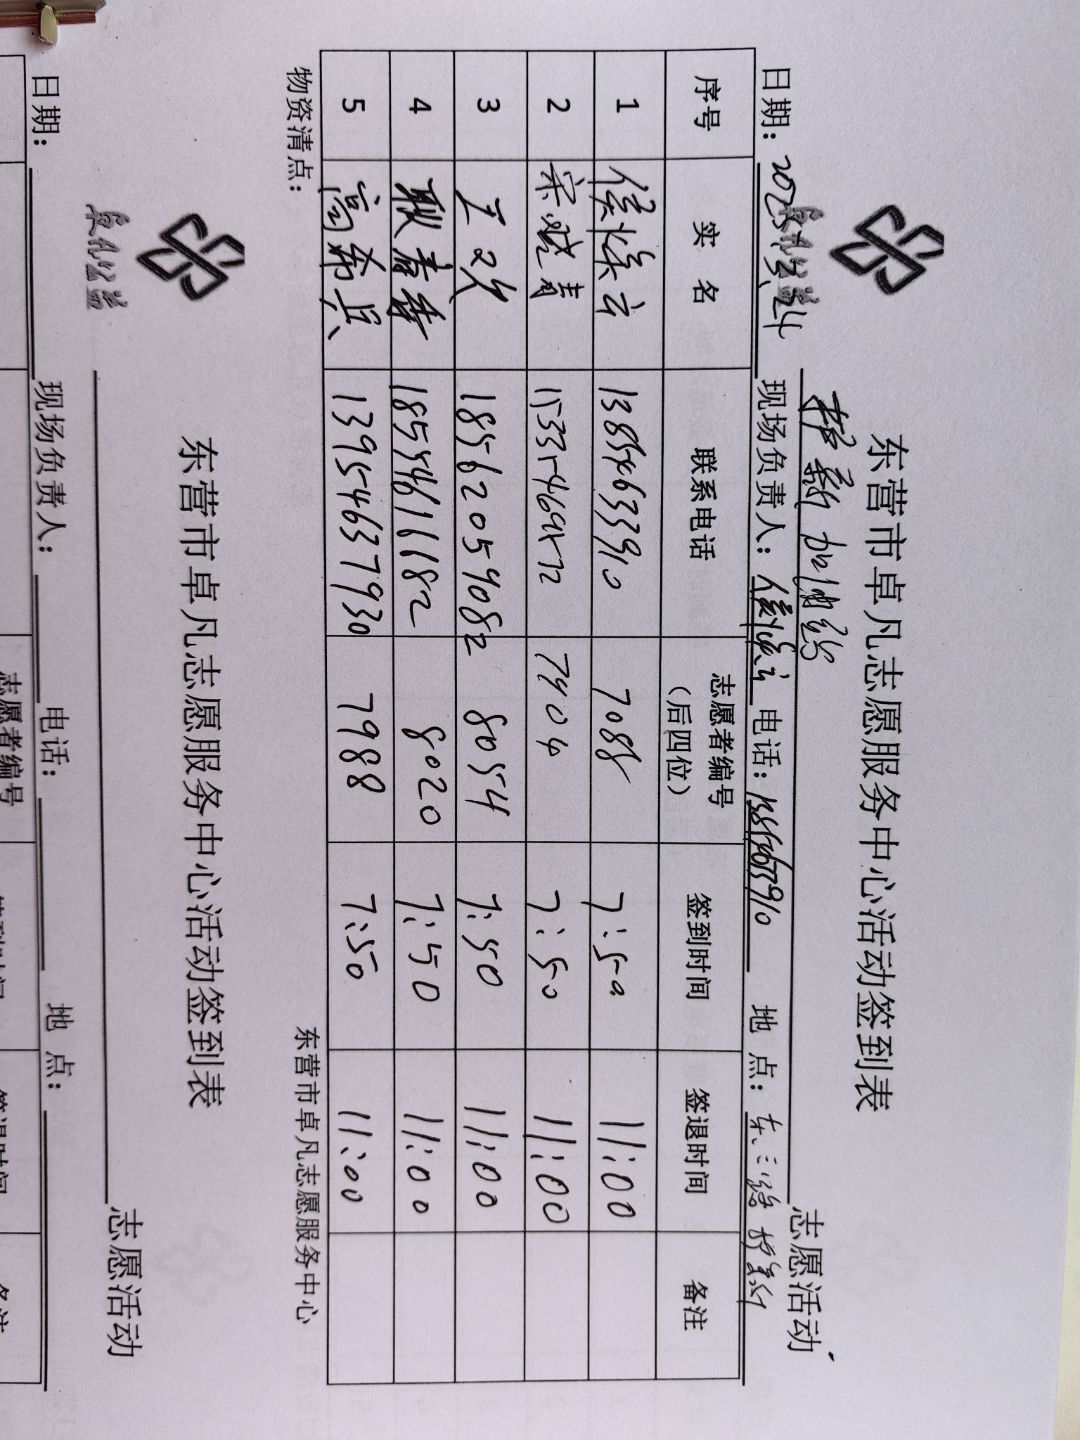 东营市卓凡志愿服务中心活动签到表
移新加油站 志愿活动
日期: 现场负责人: 侯焕云 电话: 13854633910 地 点: 东三路
序号 实 名 联系电话 志愿者编号(后四位) 签到时间 签退时间 备注
1 侯焕云 13854633910 7088 7:50 11:00
2 宋晓青 7904 7:50 11:00
3 王欢 18562059082 8054 7:50 11:00
4 耿春香 18554616182 8020 7:50 11:00
5 高希兵 13954637930 7988 7:50 11:00
物资清点: 东营市卓凡志愿服务中心
东营市卓凡志愿服务中心活动签到表
志愿活动
日期: 现场负责人: 电话: 地 点:
志愿者编号 签到时间 签退时间 备注